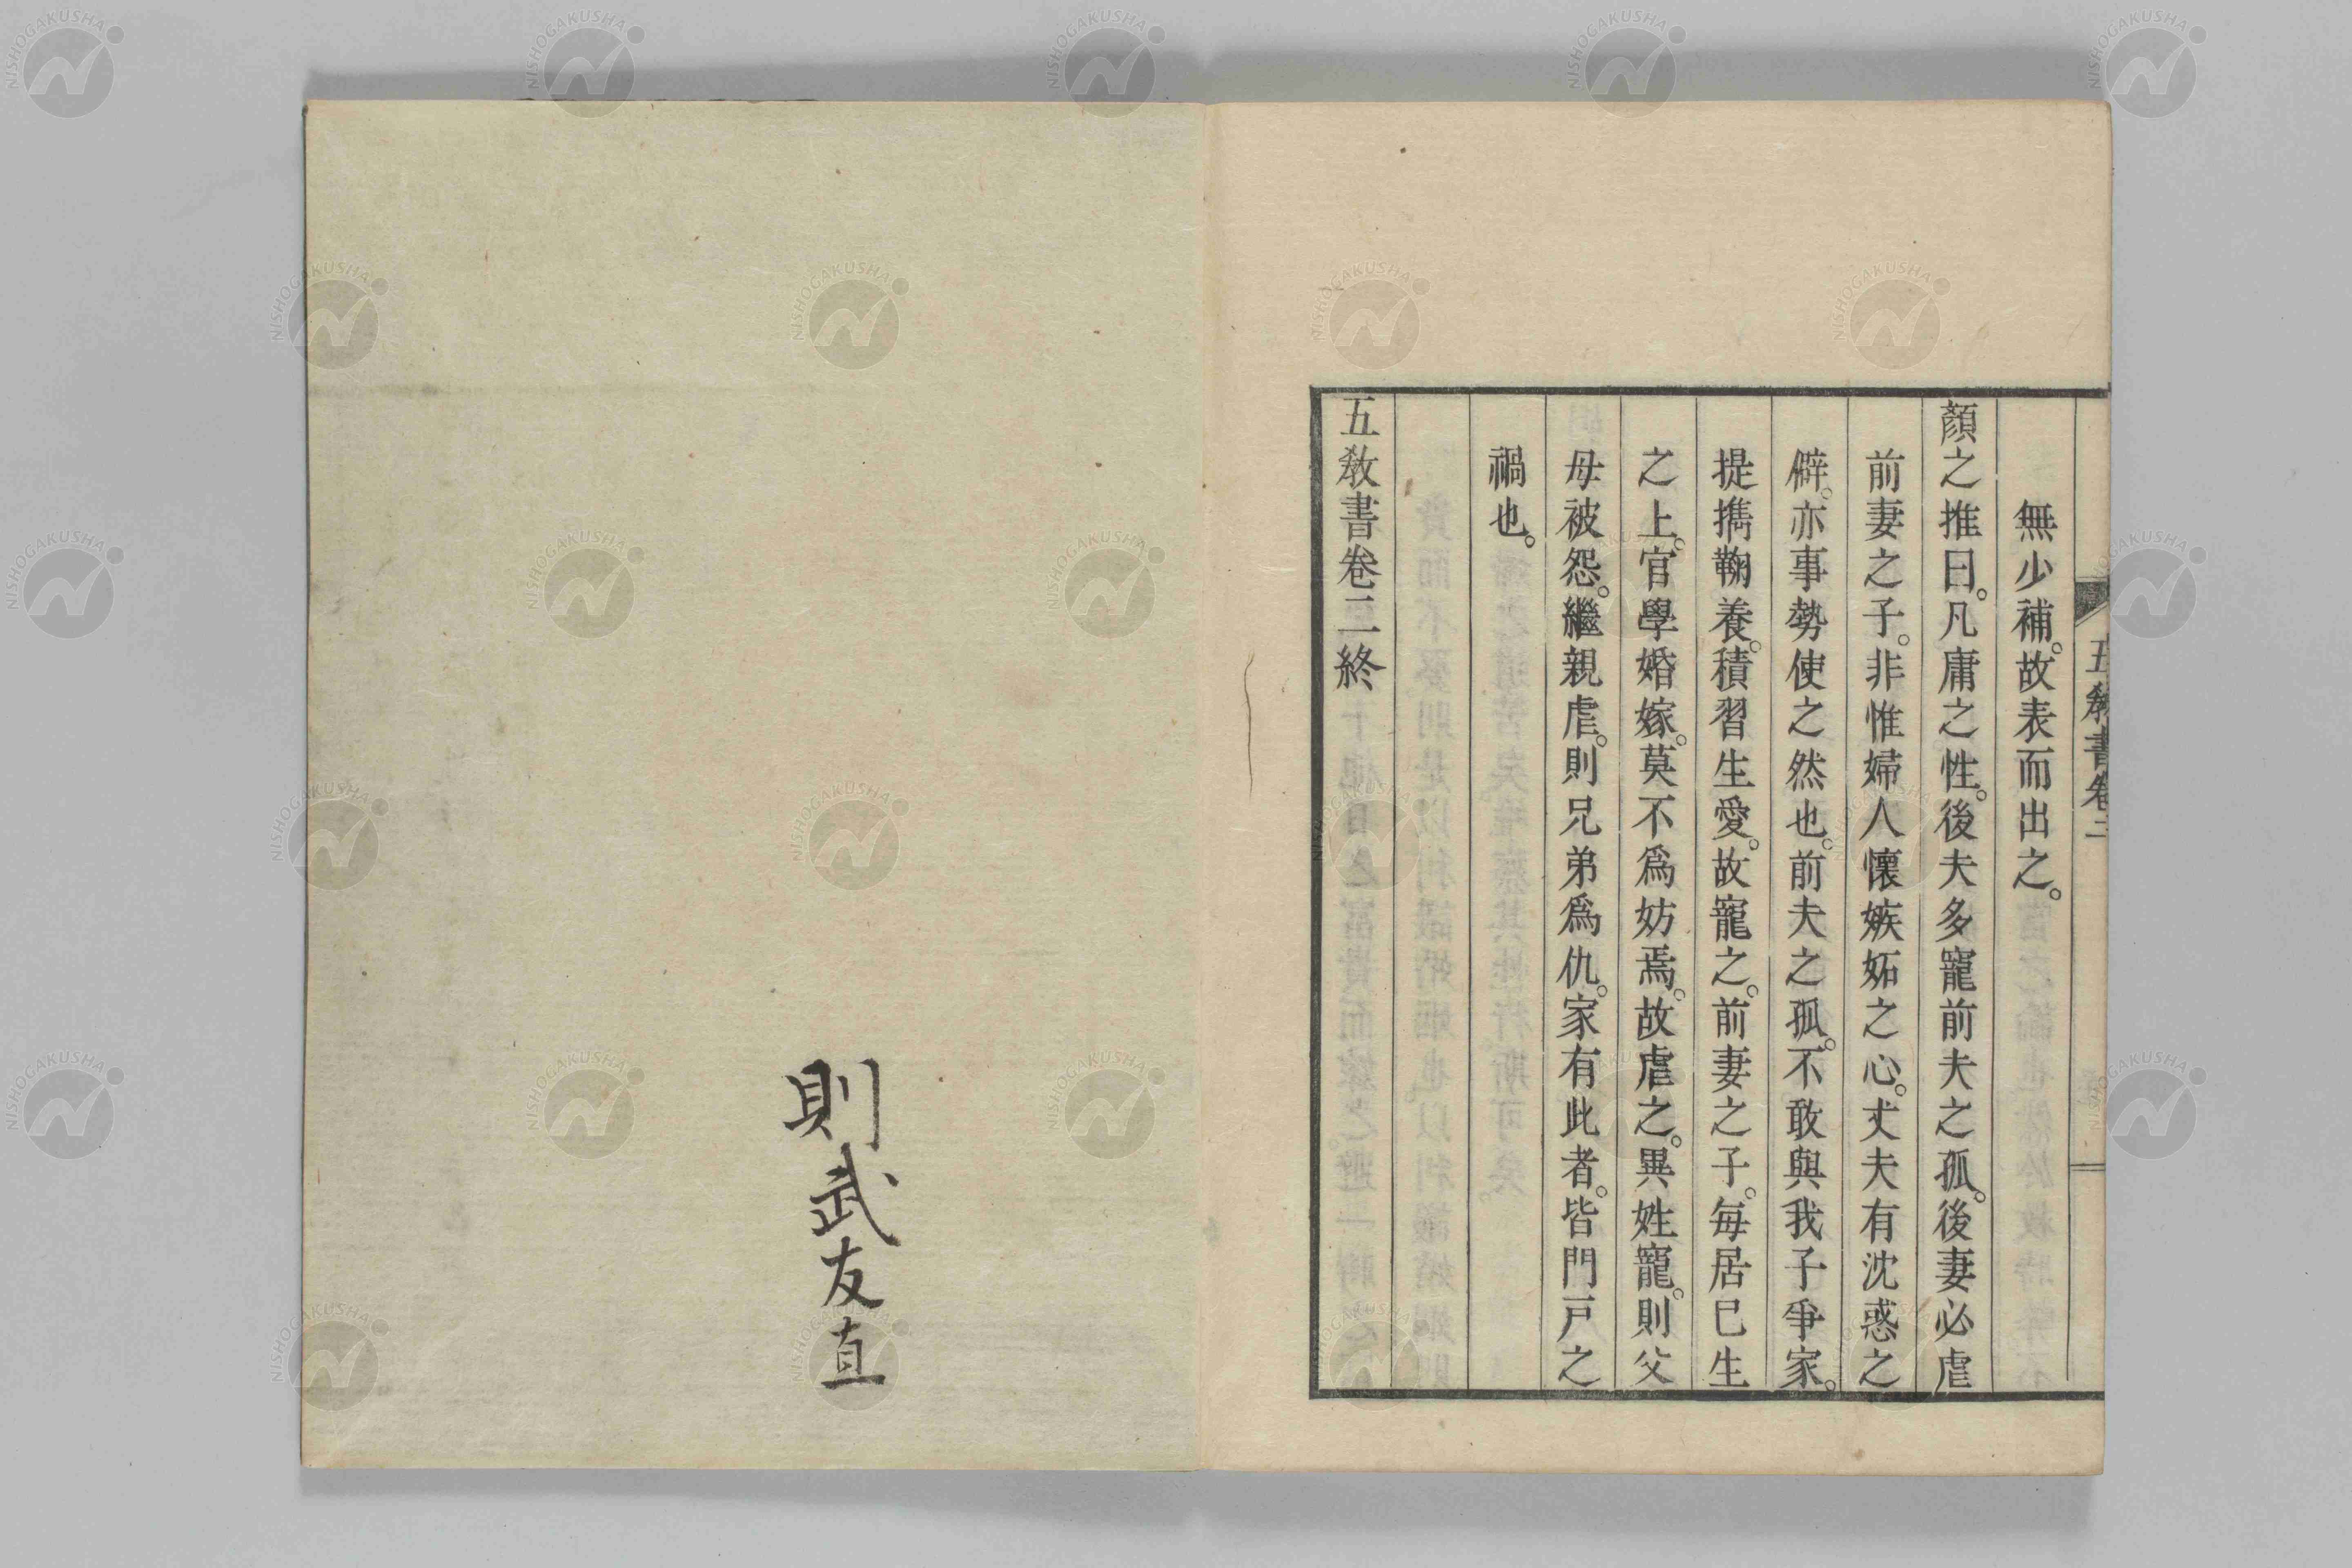 五敎書卷二
無少補。故表而出之。
顏之推曰。凡庸之性。後夫多寵前夫之孤。後妻必虐
前妻之子。非惟婦人懷嫉妬之心。丈夫有沈惑之
僻。亦事勢使之然也。前夫之孤。不敢與我子爭家。
提擕鞠養。積習生愛。故寵之。前妻之子。每居已生
之上。官學婚嫁。莫不爲妨焉。故虐之。異姓寵。則父
母被怨。繼親虐。則兄弟爲仇。家有此者。皆門戸之
禍也。
五敎書卷二終
則武友直
NISHOGAKUSHA